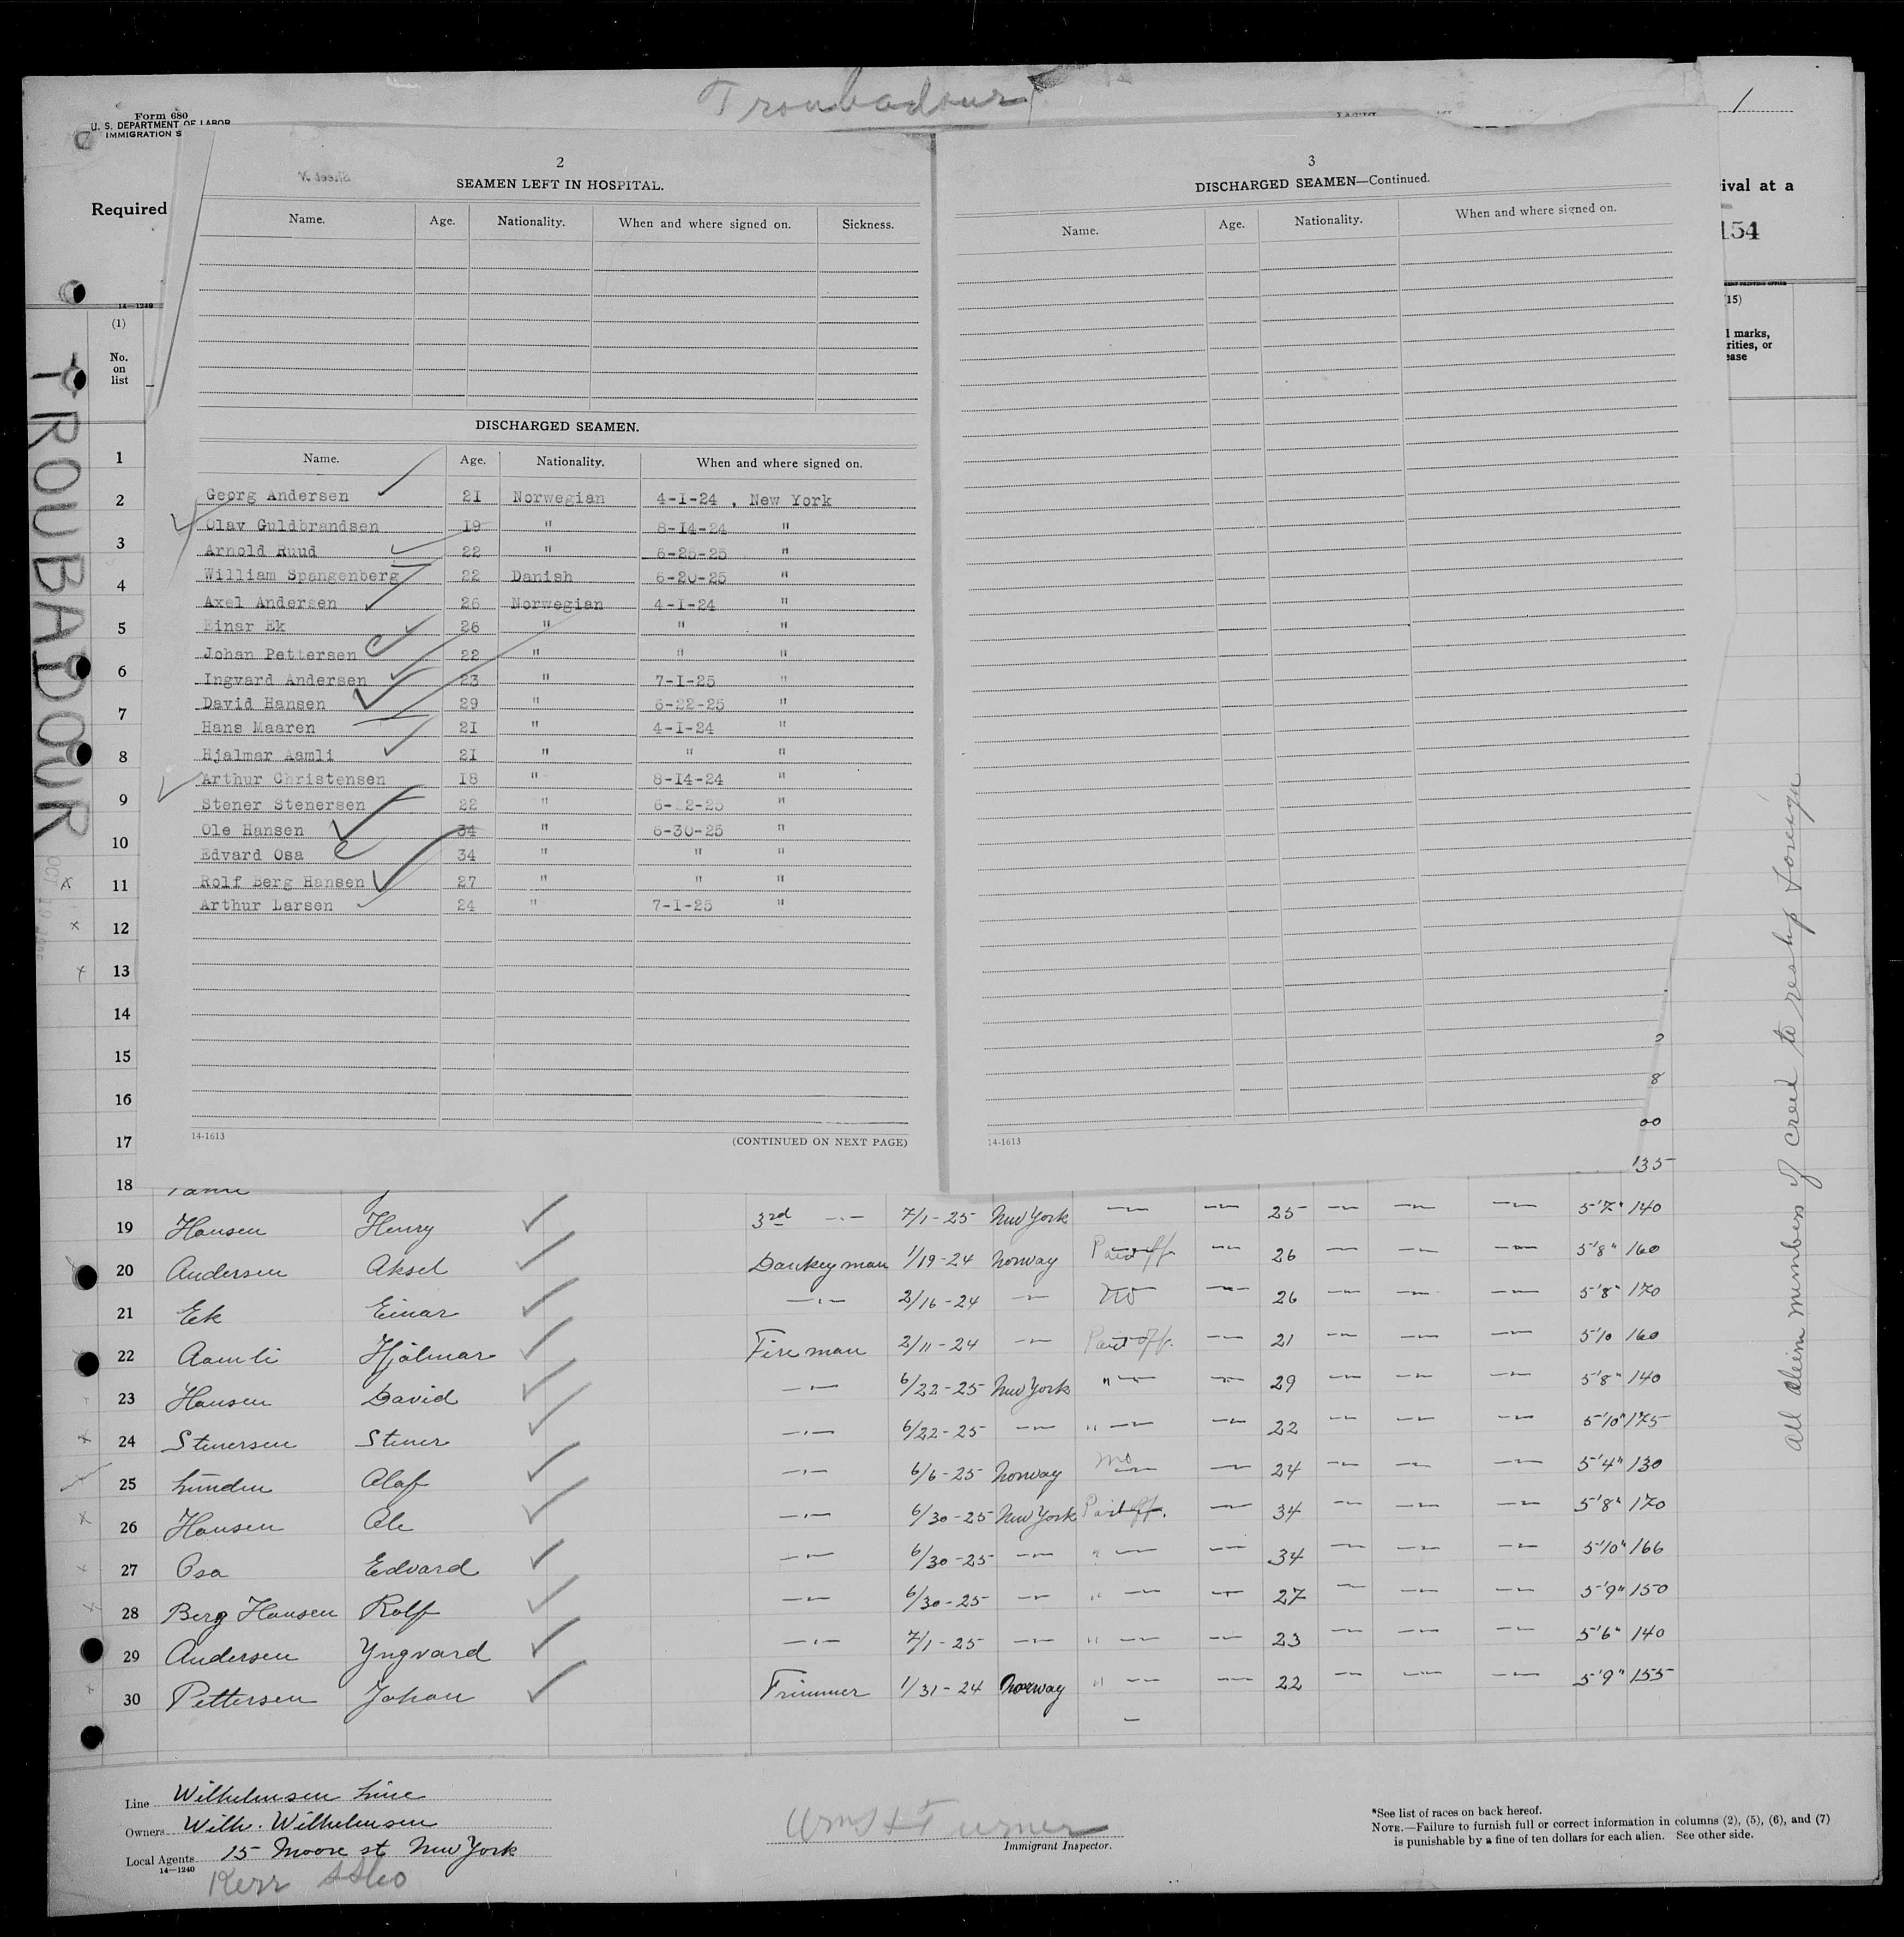 Troubadour
Form 680
U. S. DEPARTMENT OF LABOR
IMMIGRATION S
Required
1
ival at a
154
14—1240
(1)
No.
on
list
(15)
l marks,
rities, or
ease
TROUBADOUR
2
SEAMEN LEFT IN HOSPITAL.
Name. Age. Nationality. When and where signed on. Sickness.
DISCHARGED SEAMEN.
Name. Age. Nationality. When and where signed on.
Georg Andersen 21 Norwegian 4-1-24 , New York
Olav Guldbrandsen 19 " 8-14-24 "
Arnold Ruud 22 " 6-25-25 "
William Spangenberg 22 Danish 6-20-25 "
Axel Andersen 26 Norwegian 4-1-24 "
Einar Ek 26 " " "
Johan Pettersen 22 " " "
Ingvard Andersen 23 " 7-1-25 "
David Hansen 29 " 6-22-25 "
Hans Maaren 21 " 4-1-24 "
Hjalmar Aamli 21 " " "
Arthur Christensen 18 " 8-14-24 "
Stener Stenersen 22 " 6-22-25 "
Ole Hansen 34 " 6-30-25 "
Edvard Osa 34 " " "
Rolf Berg Hansen 27 " " "
Arthur Larsen 24 " 7-1-25 "
14-1613
(CONTINUED ON NEXT PAGE)
3
DISCHARGED SEAMEN—Continued.
Name. Age. Nationality. When and where signed on.
14-1613
1
2
3
4
5
6
7
8
9
10
11
12
13
14
15
16
17
18 135
19 Hansen Henry 3rd —"— 7/1-25 New York —"— —"— 25 —"— —"— —"— 5'7" 140
20 Andersen Aksel Dankeyman 1/19-24 Norway Paid off —"— 26 —"— —"— —"— 5'8" 160
21 Ek Einar —"— 2/16-24 —"— —"— 26 —"— —"— —"— 5'8" 170
22 Aamli Hjalmar Fireman 2/11-24 —"— Paid off —"— 21 —"— —"— —"— 5'10 160
23 Hansen David —"— 6/22-25 New York "—"— —"— 29 —"— —"— —"— 5'8" 140
24 Stenersen Stener —"— 6/22-25 —"— "—"— —"— 22 —"— —"— —"— 5'10" 175
25 Lunden Olaf —"— 6/6-25 Norway no —"— 24 —"— —"— —"— 5'4" 130
26 Hansen Ole —"— 6/30-25 New York Paid off. —"— 34 —"— —"— —"— 5'8" 170
27 Osa Edvard —"— 6/30-25 —"— "—"— —"— 34 —"— —"— —"— 5'10" 166
28 Berg Hansen Rolf —"— 6/30-25 —"— "—"— —"— 27 —"— —"— —"— 5'9" 150
29 Andersen Yngvard —"— 7/1-25 —"— "—"— —"— 23 —"— —"— —"— 5'6" 140
30 Pettersen Johan Trimmer 1/31-24 Norway "—"— —"— 22 —"— —"— —"— 5'9" 155
All aliem members of crew to reship foreign
Line Wilhelmsen Line
Owners Wilh. Wilhelmsen
Local Agents 15 Moore st New York
14—1240
Kerr SSCo
Turner
Immigrant Inspector.
*See list of races on back hereof.
NOTE.—Failure to furnish full or correct information in columns (2), (5), (6), and (7)
is punishable by a fine of ten dollars for each alien. See other side.